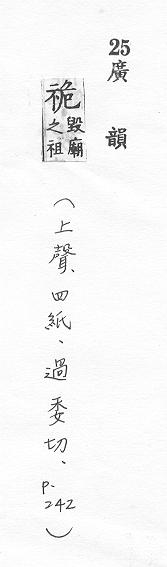 25廣韻
祪毀廟之祖
(上聲、四紙、過委切、p.242)